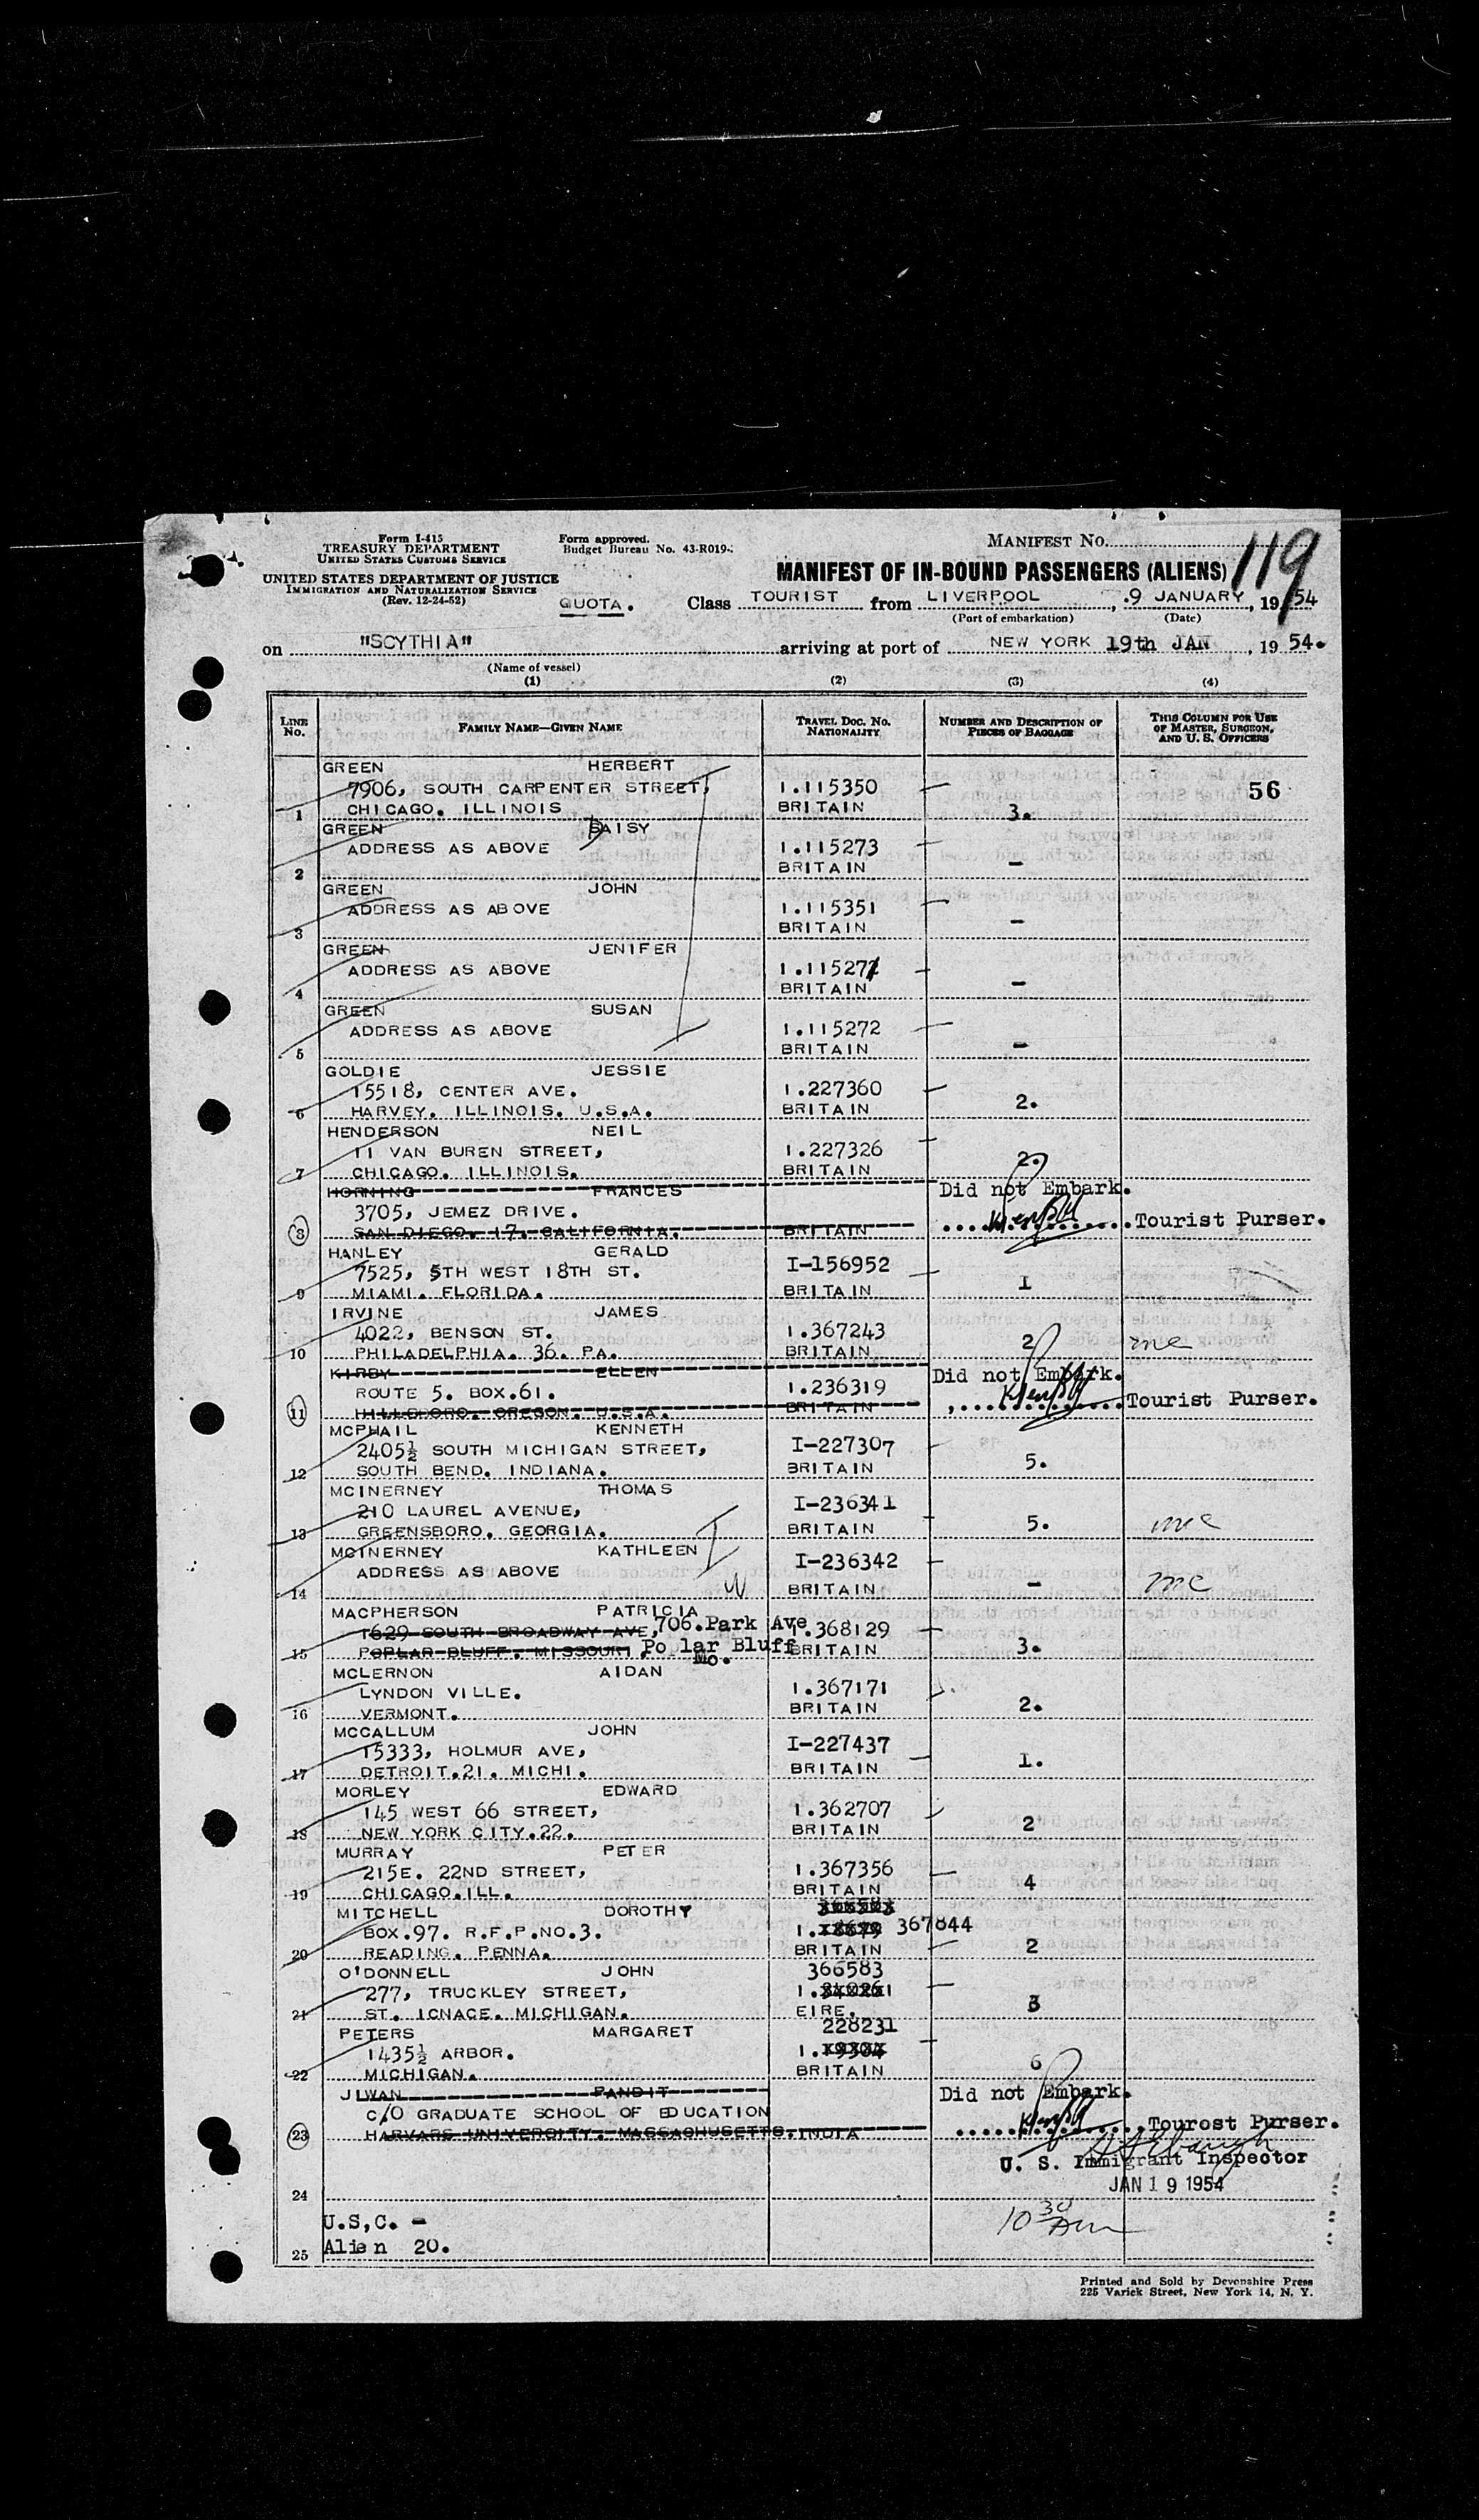 Form I-415
TREASURY DEPARTMENT
UNITED STATES CUSTOMS SERVICE
UNITED STATES DEPARTMENT OF JUSTICE
IMMIGRATION AND NATURALIZATION SERVICE
(Rev. 12-24-52)
Form approved.
Budget Bureau No. 43-R019-
MANIFEST NO.
119
MANIFEST OF IN-BOUND PASSENGERS (ALIENS)
QUOTA. Class TOURIST from LIVERPOOL, .9 JANUARY, 1954
(Port of embarkation) (Date)
on "SCYTHIA" arriving at port of NEW YORK 19th JAN, 19 54.
(Name of vessel)
(1) (2) (3) (4)
LINE NO. FAMILY NAME—GIVEN NAME TRAVEL DOC. NO. NATIONALITY NUMBER AND DESCRIPTION OF PIECES OF BAGGAGE THIS COLUMN FOR USE OF MASTER, SURGEON, AND U. S. OFFICERS
GREEN HERBERT
7906, SOUTH CARPENTER STREET, 1.115350 56
1 CHICAGO. ILLINOIS BRITAIN 3.
GREEN DAISY
ADDRESS AS ABOVE 1.115273
2 BRITAIN —
GREEN JOHN
ADDRESS AS ABOVE 1.115351
3 BRITAIN —
GREEN JENIFER
ADDRESS AS ABOVE 1.115271
4 BRITAIN —
GREEN SUSAN
ADDRESS AS ABOVE 1.115272
5 BRITAIN —
GOLDIE JESSIE
15518, CENTER AVE. 1.227360
6 HARVEY. ILLINOIS. U.S.A. BRITAIN 2.
HENDERSON NEIL
11 VAN BUREN STREET, 1.227326
7 CHICAGO. ILLINOIS. BRITAIN 2.
HORNING FRANCES Did not Embark.
3705, JEMEZ DRIVE.
8 SAN DIEGO. 17. CALIFORNIA. BRITAIN Tourist Purser.
HANLEY GERALD
7525, 5TH WEST 18TH ST. I-156952
9 MIAMI. FLORIDA. BRITAIN 1
IRVINE JAMES
4022, BENSON ST. 1.367243
10 PHILADELPHIA. 36. PA. BRITAIN 2 me
KIRBY ELLEN Did not Embark.
ROUTE 5. BOX.61. 1.236319
11 HILLSBORO. OREGON. U.S.A. BRITAIN Tourist Purser.
MCPHAIL KENNETH
2405½ SOUTH MICHIGAN STREET, I-227307
12 SOUTH BEND. INDIANA. BRITAIN 5.
MCINERNEY THOMAS
210 LAUREL AVENUE, I-236341
13 GREENSBORO. GEORGIA. BRITAIN 5. me
MCINERNEY KATHLEEN
ADDRESS AS ABOVE I-236342
14 BRITAIN — me
MACPHERSON PATRICIA
1629 SOUTH BROADWAY AVE, 706.Park Ave 1.368129
15 POPLAR BLUFF. MISSOURI Po lar Bluff BRITAIN 3.
Mo.
MCLERNON AIDAN
LYNDON VILLE. 1.367171
16 VERMONT. BRITAIN 2.
MCCALLUM JOHN
15333, HOLMUR AVE, I-227437
17 DETROIT.21. MICHI. BRITAIN 1.
MORLEY EDWARD
145 WEST 66 STREET, 1.362707
18 NEW YORK CITY.22. BRITAIN 2
MURRAY PETER
215E. 22ND STREET, 1.367356
19 CHICAGO.ILL. BRITAIN 4
MITCHELL DOROTHY
BOX.97. R.F.P.NO.3. 1. 367844
20 READING. PENNA. BRITAIN 2
O'DONNELL JOHN 366583
277, TRUCKLEY STREET, 1.
21 ST. IGNACE. MICHIGAN. EIRE. 3
PETERS MARGARET 228231
1435½ ARBOR. 1.
22 MICHIGAN. BRITAIN 6
JIWAN PANDIT Did not Embark.
C/O GRADUATE SCHOOL OF EDUCATION
23 HARVARS UNIVERSITY. MASSACHUSETTS. INDIA Tourost Purser.
U. S. Immigrant Inspector
JAN 19 1954
24
10 30 Am
U.S,C. —
25 Alien 20.
Printed and Sold by Devonshire Press
225 Varick Street, New York 14, N. Y.